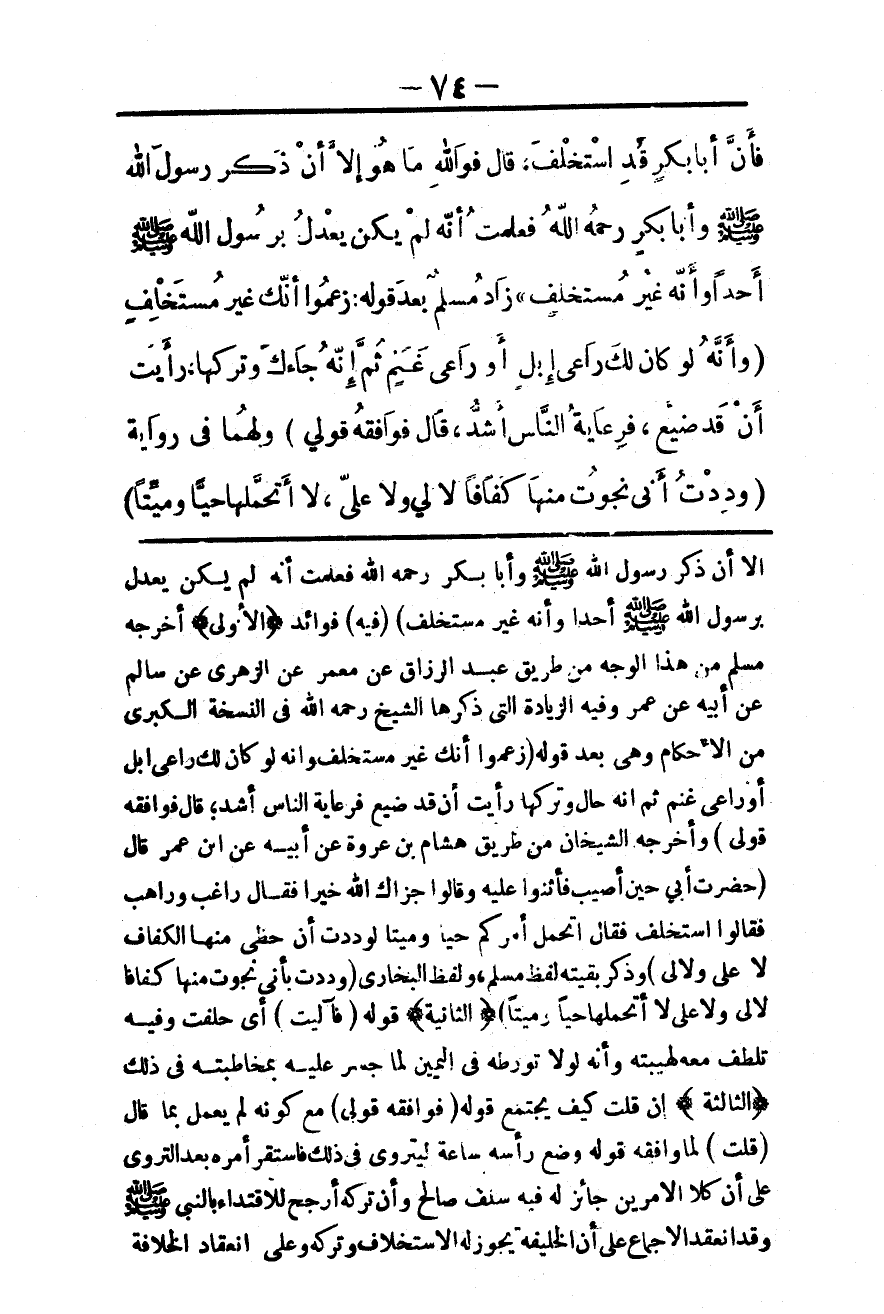 — ٧٤ —
فأَنَّ أبابكرٍ قَدِ اسْتخلْفَ، قال فوَاللهِ مَا هُوَ إلاَّ أنْ ذَكر رسولَ الله
ﷺ وأبابكرٍ رحمهُ اللّهُ فعلمتُ أنّه لمْ يكن يعْدلُ برسُول اللّه ﷺ
أَحداً وأَنّه غيْر مُستخلفٍ» زَاد مُسلمٌ بعدَ قوله: زعمُوا أنّك غير مُستَخْلِفٍ
(وأَنَّهُ لو كان لكَ رَاعى إبلٍ أو رَاعى غَنَمٍ ثمَّ إنّهُ جاءَك وتركها: رأَيت
أَنْ قَد ضيَّع، فرِعايةُ النَّاس أشدُّ، قَال فوَافقهُ قولي) ولهُما فى روايَة
(ودِدْتُ أَنى نجوتُ منهَا كفَافًا لا لي ولا علىّ، لا أَتحمَّلها حيًّا وميّتاً)
الا أن ذكر رسول الله ﷺ وأبا بكر رحمه الله فعلمت أنه لم يكن يعدل
برسول الله ﷺ أحدا وأنه غير مستخلف) (فيه) فوائد ﴿الأولى﴾ أخرجه
مسلم من هذا الوجه من طريق عبد الرزاق عن معمر عن الزهرى عن سالم
عن أبيه عن عمر وفيه الزيادة التى ذكرها الشيخ رحمه الله فى النسخة الكبرى
من الأحكام وهى بعد قوله(زعموا أنك غير مستخلف وانه لو كان لك راعى ابل
أوراعى غنم ثم انه حال وتركها رأيت أن قد ضيع فرعاية الناس أشد؛ قال فوافقه
قولى) وأخرجه الشيخان من طريق هشام بن عروة عن أبيه عن ابن عمر قال
(حضرت أبي حين أصيب فأثنوا عليه وقالوا جزاك الله خيرا فقال راغب وراهب
فقالوا استخلف فقال اتحمل أمركم حيا وميتا لوددت أن حظى منها الكفاف
لا على ولالى)وذكر بقيته لفظ مسلم، ولفظ البخارى(وددت بأنى نجوت منها كفافا
لالى ولاعلى لا أتحملها حياً وميتاً)﴿ الثانية﴾ قوله (فآليت) أى حلفت وفيه
تلطف معه لهيبته وأنه لولا تورطه فى اليمين لما جسر عليه بمخاطبته فى ذلك
﴿الثالثة﴾ إن قلت كيف يجتمع قوله(فوافقه قولى) مع كونه لم يعمل بما قال
(قلت) لما وافقه قوله وضع رأسه ساعة ليتروى فى ذلك فاستقر أمره بعد التروى
على أن كلا الامرين جائز له فيه سلف صالح وأن تركه أرجح للاقتداء بالنبي ﷺ
وقد انعقد الاجماع على أن الخليفة يجوز له الاستخلاف وتركه وعلى انعقاد الخلافة